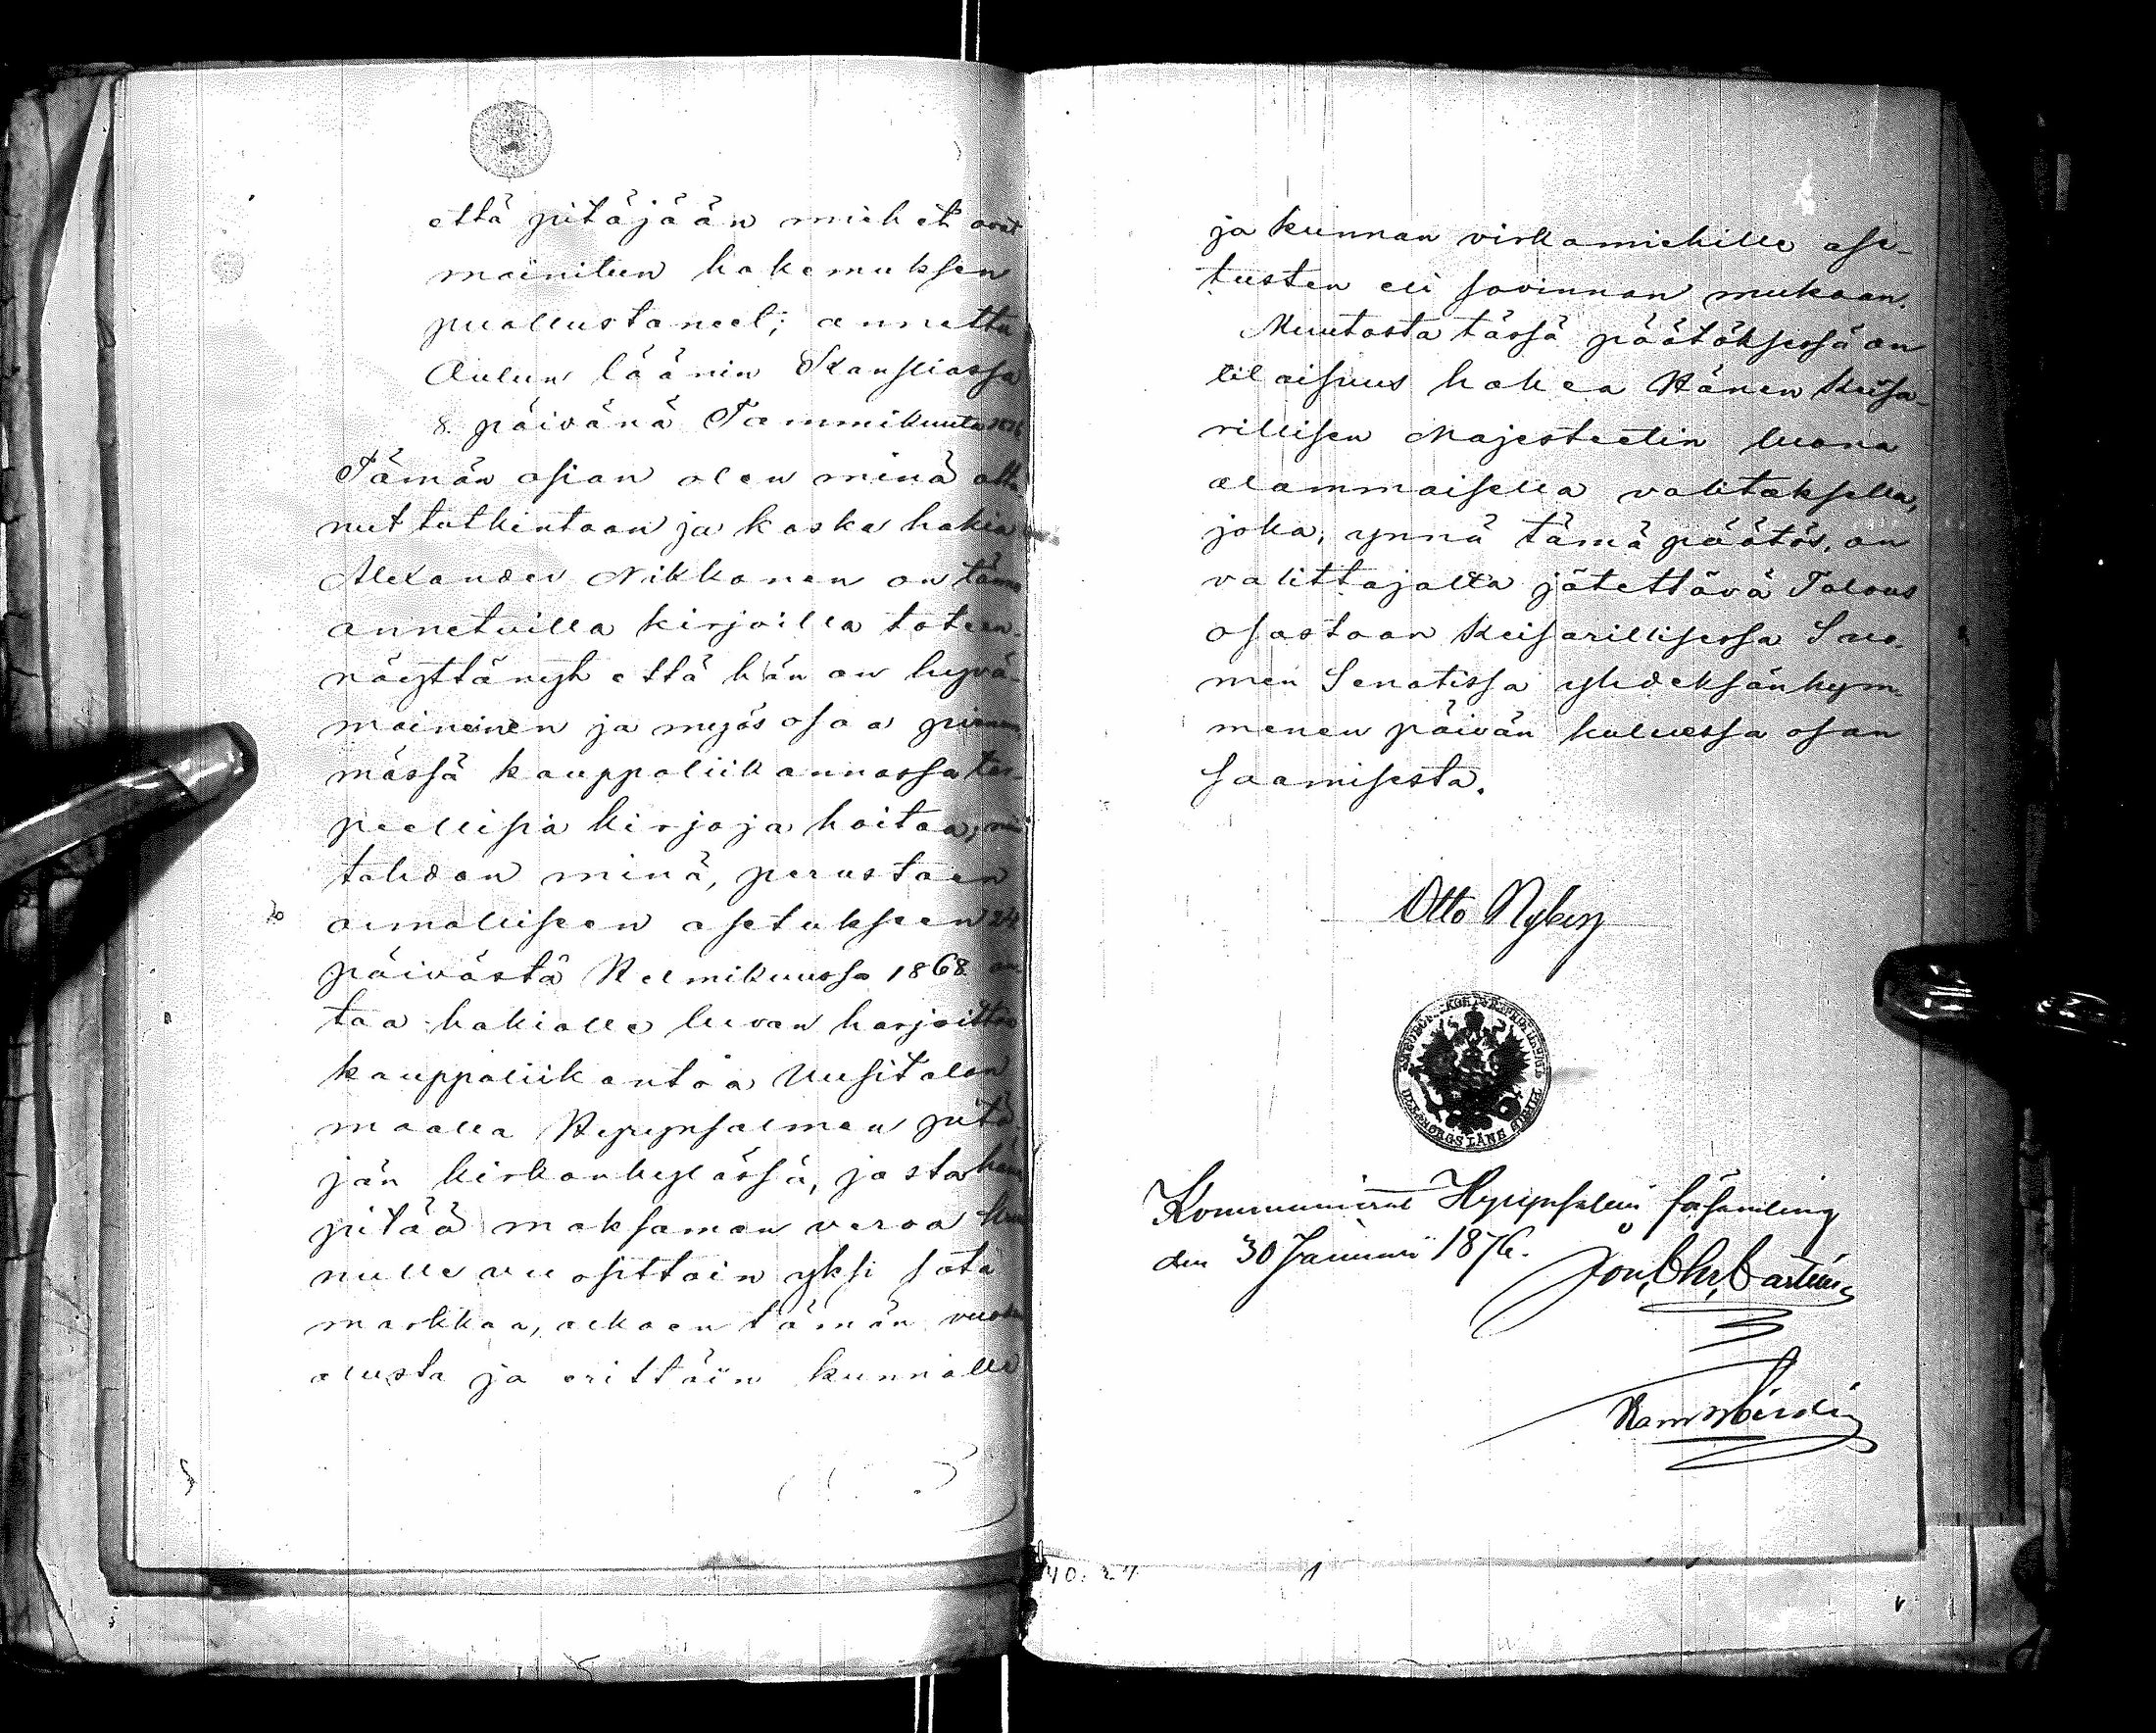 että pitäjään miehet ovat
mainitun hakemuksen
puollustaneet; annettu
Oulun läänin Kansliassa
8. päivänä Tammikuuta 1876
Tämän asian olen minä otta
nut tutkintaan ja koska hakia
Alexander Nikkonen on tänne
annetuilla kirjoilla toteen
näyttänyt että hän on hyvä-
maineinen ja myös osaa
mässä kauppaliikannassa tar-
peellisia kirjoja hoitaa, niin
tahdon minä, perustaen
armolliseen asetukseen 24
päivästä Helmikuussa 1868 an
taa hakialle luvan harjoittaa
kauppaliikantoa Uusitalon
maalla Hyrynsalmen pitä
jän kirkonkylässä, josta hänen
pitää maksaman veroa kruu
nulle vuosittain yksi sata
markkaa, alkaen tämän vuoden
alusta ja erittäin kunnalle
ja kunnan virkamiehille ase-
tusten eli sovinnon mukaan.
Muutosta tässä päätöksessä on
tilaisuus hakea Hänen Keisa-
rillisen Majesteetin luona
alammaisella valitoksella,
joka, ynnä tämä päätös, on
valittajalta jätettävä Talous
osastoon Keisarillisessa Suo-
men Senatissa yhdeksänkym-
menen päivän kuluessa osan
saamisesta.
Otto Nyberg
Kommunicerat Hyrynsalmi församling
den 30 Januari 1876.
40:27